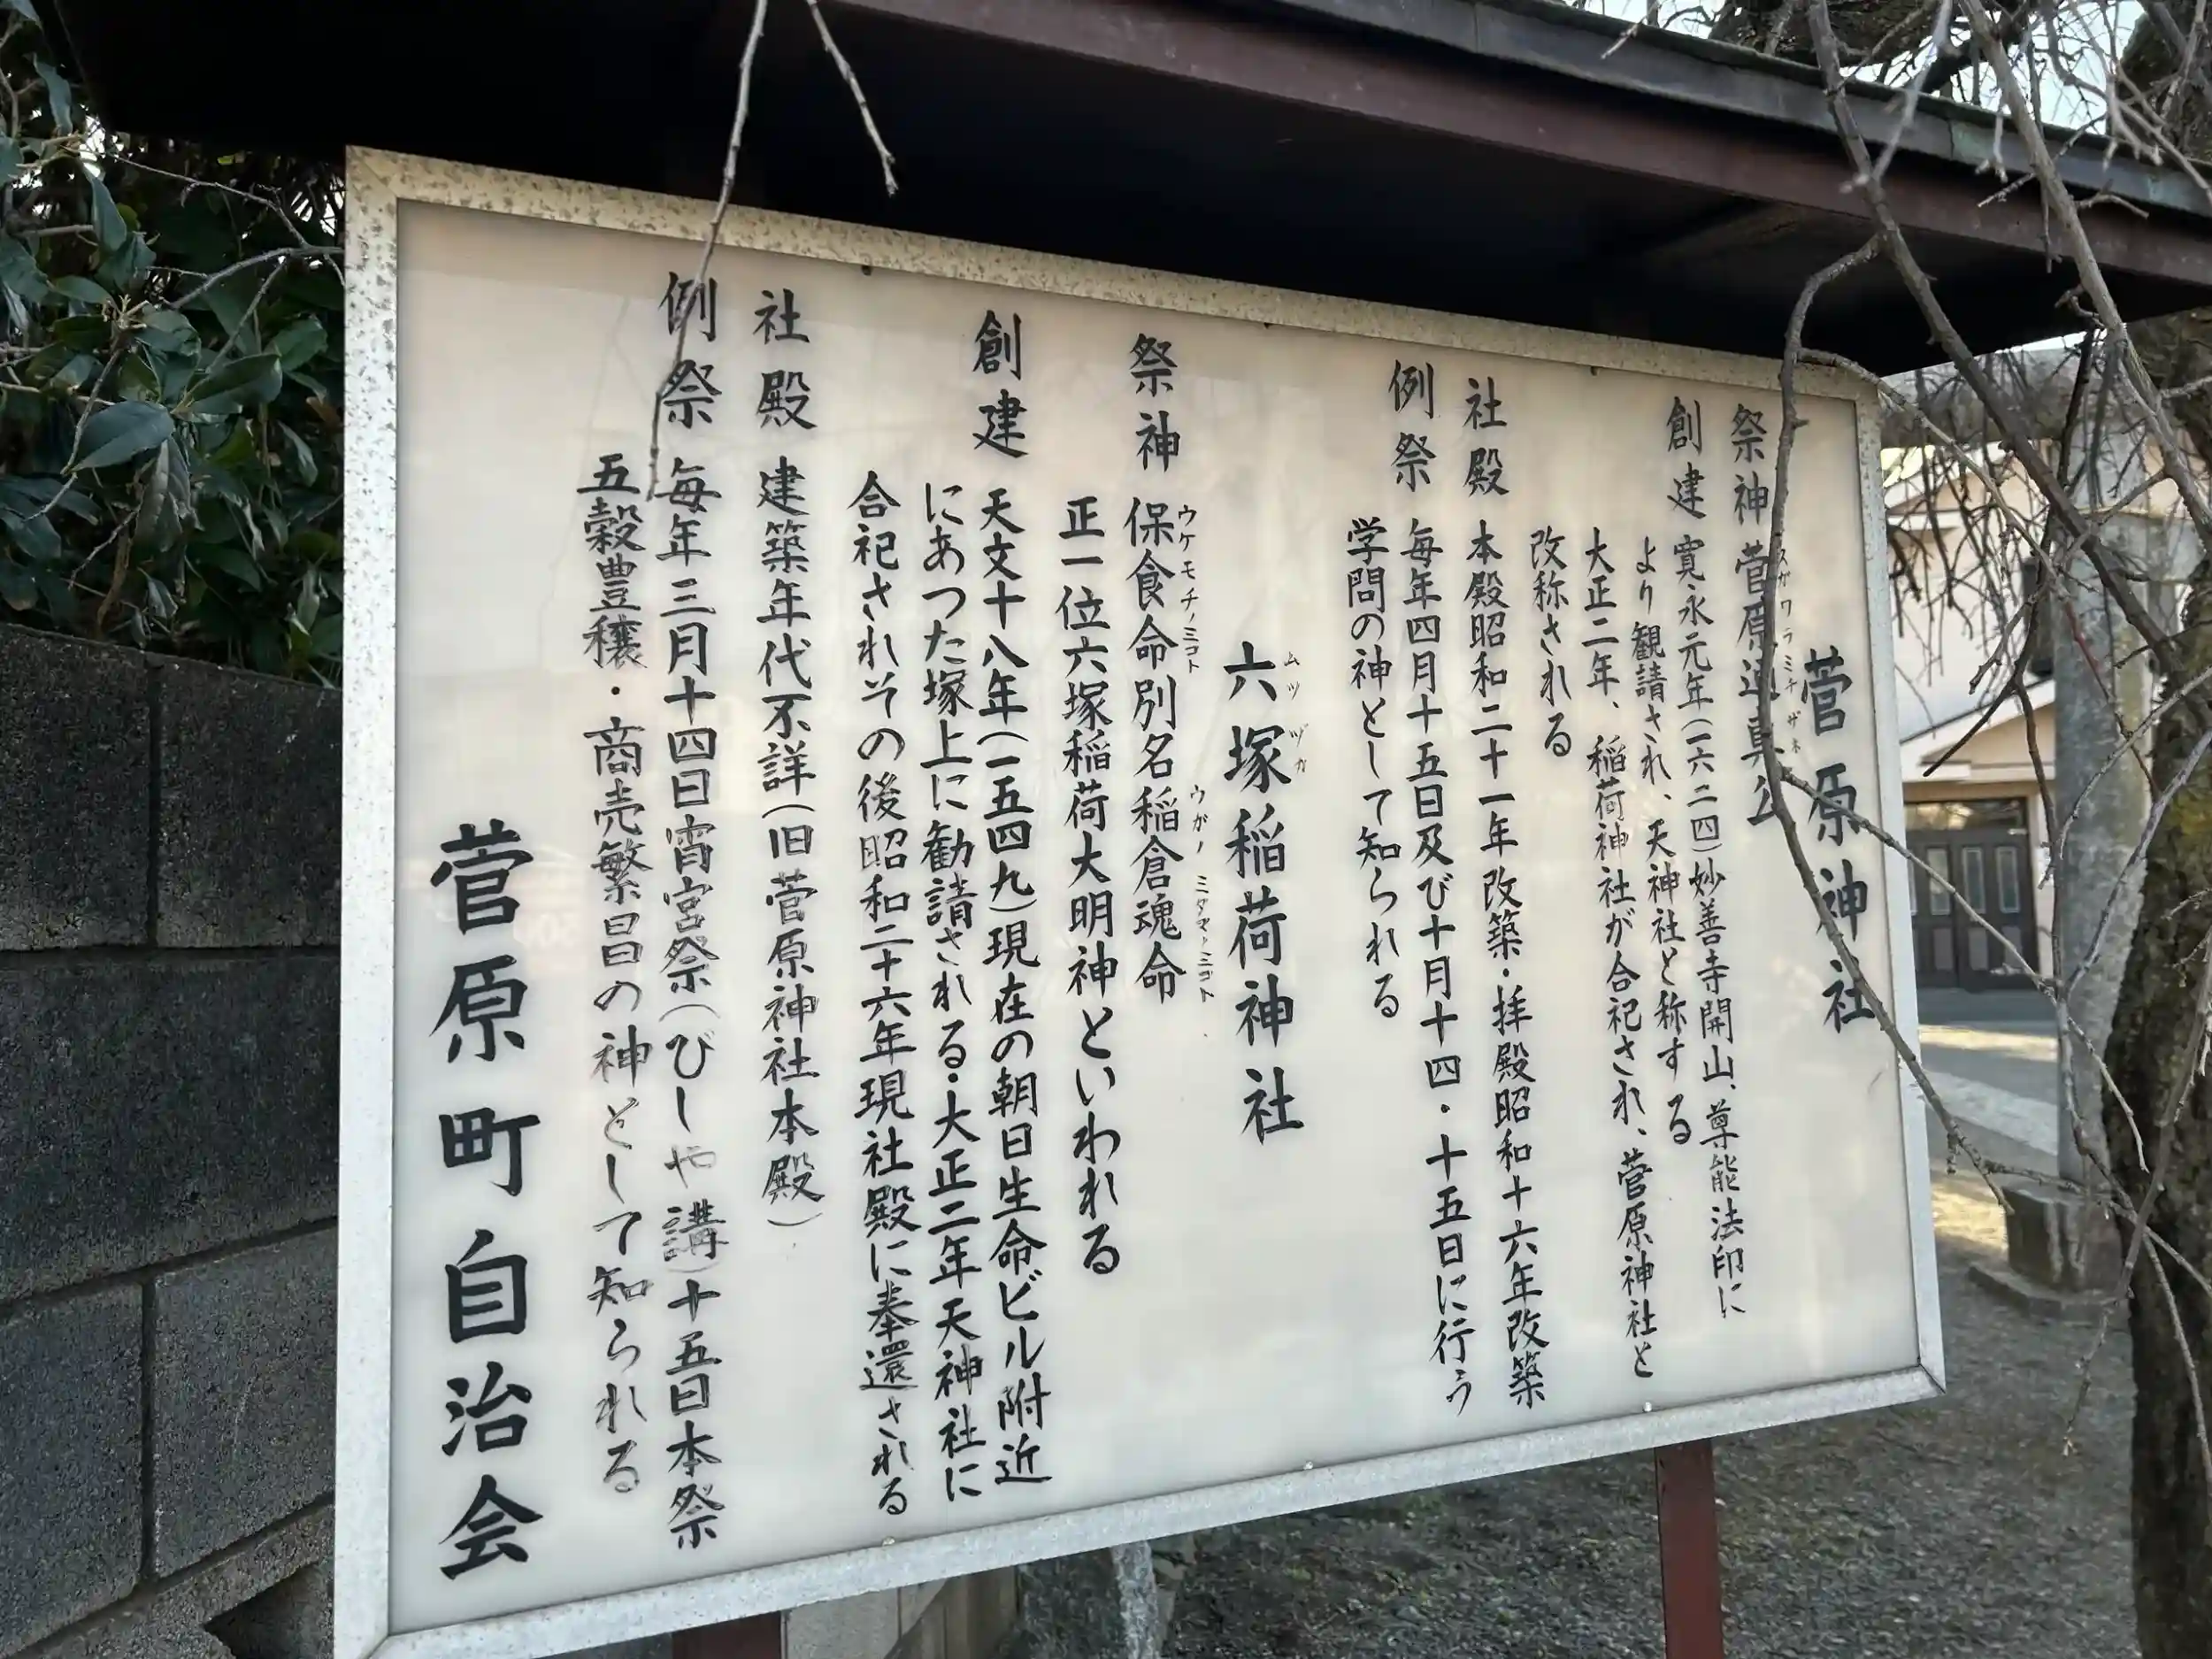 菅原神社
祭神 菅原道真公
スガワラミチザネ
創建 寛永元年(一六二四)妙善寺開山、尊能法印に
より観請され、天神社と称する
大正二年、稲荷神社が合祀され、菅原神社と
改称される
社殿 本殿昭和二十一年改築・拝殿昭和十六年改築
例祭 毎年四月十五日及び十月十四・十五日に行う
学問の神として知られる
六塚稲荷神社
ムツヅカ
祭神 保食命別名稲倉魂命
ウケモチノミコト ウガノミタマノミコト
正一位六塚稲荷大明神といわれる
創建 天文十八年(一五四九)現在の朝日生命ビル附近
にあつた塚上に勧請される・大正二年天神社に
合祀されその後昭和二十六年現社殿に奉還される
社殿 建築年代不詳(旧菅原神社本殿)
例祭 毎年三月十四日宵宮祭(びしや講)十五日本祭
五穀豊穣・商売繁昌の神として知られる
菅原町自治会